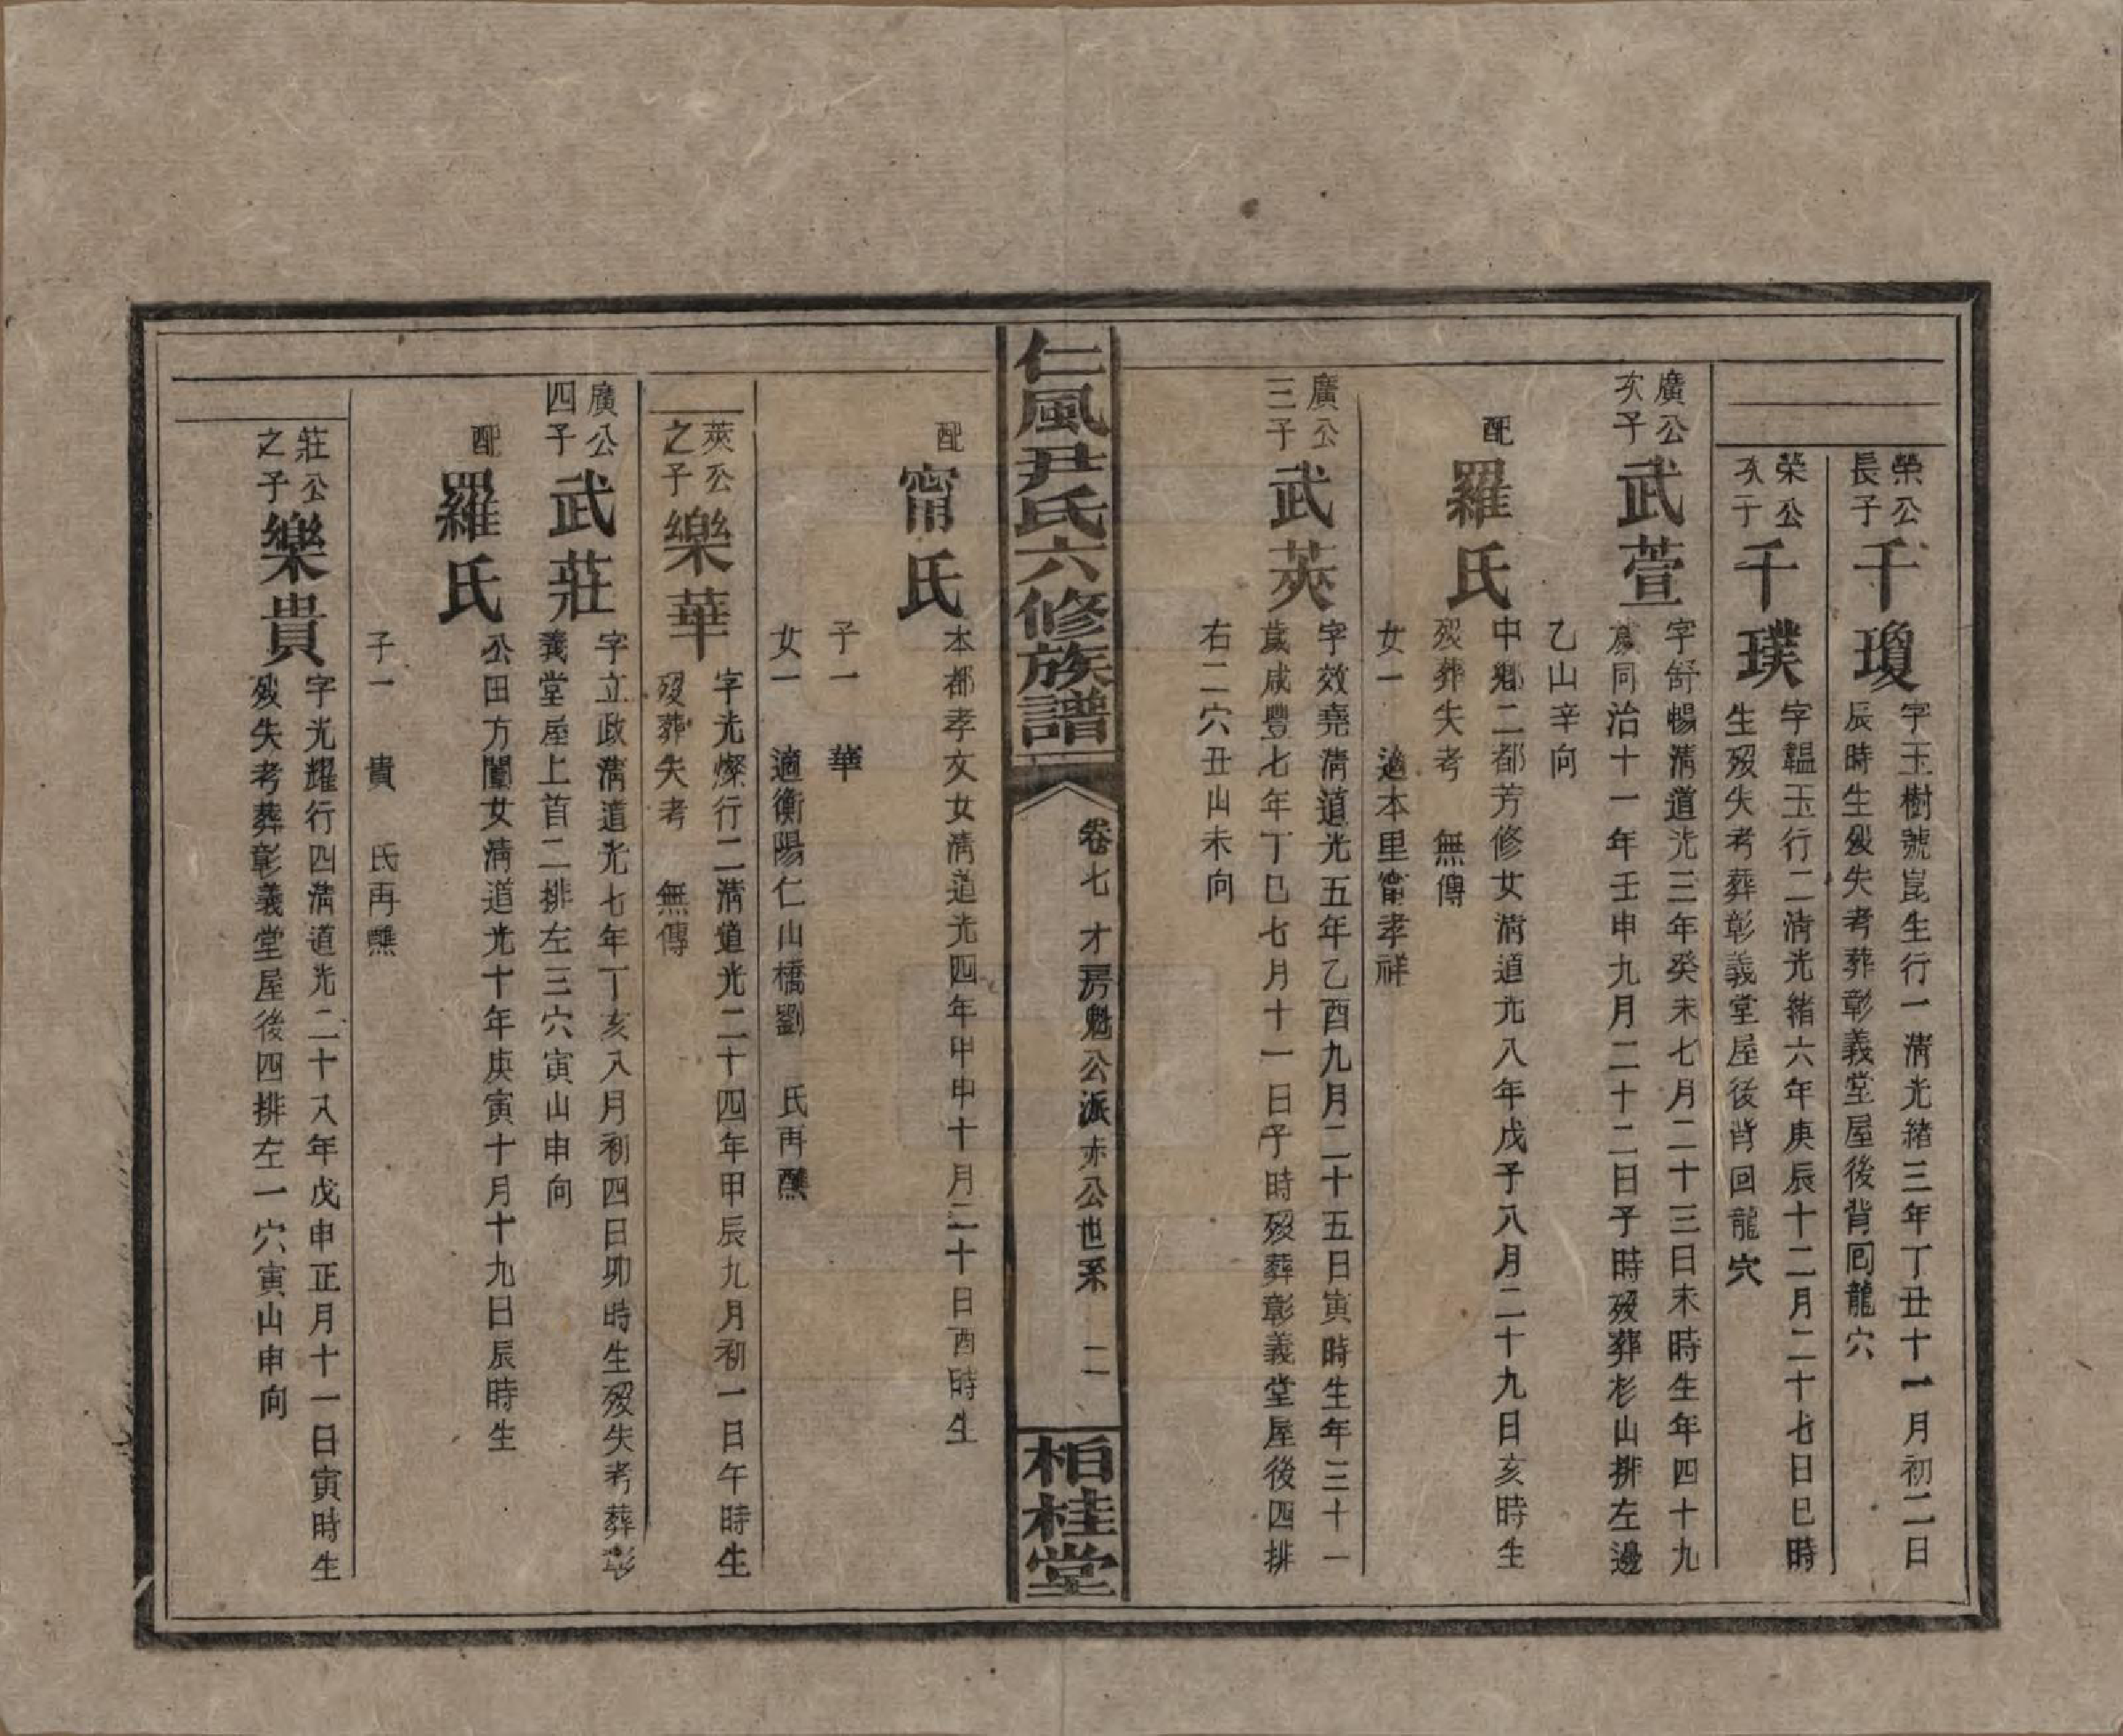 榮公
長子
千瓊
字玉樹號崑生行一清光緒三年丁丑十一月初二日
辰時生殁失考葬彰義堂屋後背囘龍穴
榮公
次子
千璞
字韞玉行二清光緒六年庚辰十二月二十七日巳時
生殁失考葬彰義堂屋後背回龍穴
廣公
次子
武萱
字舒暢清道光三年癸未七月二十三日未時生年四十九
歲同治十一年壬申九月二十二日子時殁葬杉山排左邊
乙山辛向
配
羅氏
中鄉二都芳修女清道光八年戊子八月二十九日亥時生
殁葬失考　無傳
女一　適本里甯孝祥
廣公
三子
武莢
字效堯清道光五年乙酉九月二十五日寅時生年三十一
歲咸豐七年丁巳七月十一日子時殁葬彰義堂屋後四排
右二穴丑山未向
仁風尹氏六修族譜
卷七　才房魁公派赤公世系　二
柏桂堂
配
甯氏
本都孝文女清道光四年甲申十月二十日酉時生
子一　華
女一　適衡陽仁山橋劉　氏再醮
莢公
之子
樂華
字光燦行二清道光二十四年甲辰九月初一日午時生
殁葬失考　無傳
廣公
四子
武莊
字立政清道光七年丁亥八月初四日卯時生殁失考葬彰
義堂屋上首二排左三穴寅山申向
配
羅氏
公田方闓女清道光十年庚寅十月十九日辰時生
子一　貴　氏再醮
莊公
之子
樂貴
字光耀行四清道光二十八年戊申正月十一日寅時生
殁失考葬彰義堂屋後四排左一穴寅山申向